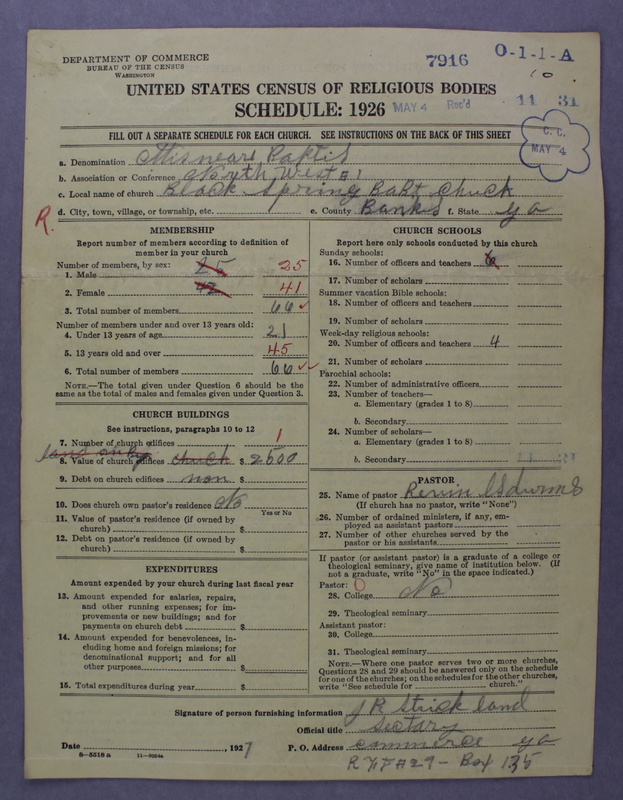 DEPARTMENT OF COMMERCE
BUREAU OF THE CENSUS
WASHINGTON
7916
O-1-1-A
UNITED STATES CENSUS OF RELIGIOUS BODIES
SCHEDULE: 1926
MAY 4 Rec'd
11 31
C. C.
MAY 4
FILL OUT A SEPARATE SCHEDULE FOR EACH CHURCH. SEE INSTRUCTIONS ON THE BACK OF THIS SHEET
a. Denomination Misneare Baptis
b. Association or Conference North West #1
c. Local name of church Black Spring Babt Chuck
d. City, town, village, or township, etc.
e. County Banks f. State Ga
R.
MEMBERSHIP
Report number of members according to definition of member in your church
Number of members, by sex:
1. Male 25 25
2. Female 42 41
3. Total number of members 66
Number of members under and over 13 years old:
4. Under 13 years of age 21
5. 13 years old and over 45
6. Total number of members 66
NOTE.—The total given under Question 6 should be the same as the total of males and females given under Question 3.
CHURCH BUILDINGS
See instructions, paragraphs 10 to 12
7. Number of church edifices 1
8. Value of church edifices chuch $ 2500
9. Debt on church edifices non $
10. Does church own pastor's residence No
Yes or No
11. Value of pastor's residence (if owned by church) $
12. Debt on pastor's residence (if owned by church) $
EXPENDITURES
Amount expended by your church during last fiscal year
13. Amount expended for salaries, repairs, and other running expenses; for improvements or new buildings; and for payments on church debt $
14. Amount expended for benevolences, including home and foreign missions; for denominational support; and for all other purposes $
15. Total expenditures during year $
CHURCH SCHOOLS
Report here only schools conducted by this church
Sunday schools:
16. Number of officers and teachers 6
17. Number of scholars
Summer vacation Bible schools:
18. Number of officers and teachers
19. Number of scholars
Week-day religious schools:
20. Number of officers and teachers 4
21. Number of scholars
Parochial schools:
22. Number of administrative officers
23. Number of teachers—
a. Elementary (grades 1 to 8)
b. Secondary
24. Number of scholars—
a. Elementary (grades 1 to 8)
b. Secondary
11 31
PASTOR
25. Name of pastor
(If church has no pastor, write "None")
26. Number of ordained ministers, if any, employed as assistant pastors
27. Number of other churches served by the pastor or his assistants
If pastor (or assistant pastor) is a graduate of a college or theological seminary, give name of institution below. (If not a graduate, write "No" in the space indicated.)
Pastor: 0
28. College No
29. Theological seminary
Assistant pastor:
30. College
31. Theological seminary
NOTE.—Where one pastor serves two or more churches, Questions 28 and 29 should be answered only on the schedule for one of the churches; on the schedules for the other churches, write "See schedule for church."
Signature of person furnishing information J R Strickland
Official title Sectary
Date , 1927 P. O. Address Commerce Ga
8-5518a 11-9024a
R #29 - Box 135